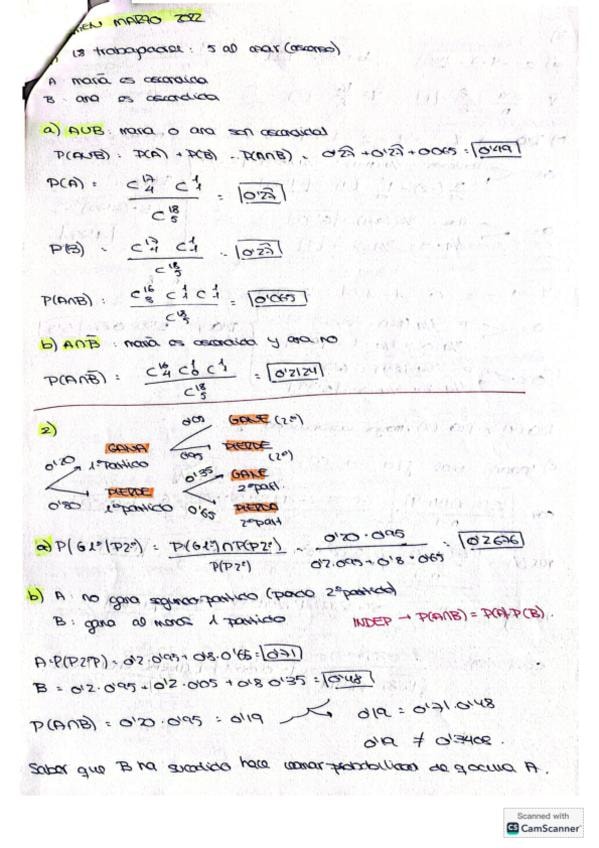 EXAMEN MARZO 2022
18 trabajadores: 5 al azar (ascenso)
A maría es ascendida
B: ana es ascendida
a) AUB: maria o ana son ascendidas
P(AUB): P(A) + P(B) - P(A∩B) = 0'27 + 0'27 + 0'065 = 0'49
P(A) = C 17 4 C 1 1 / C 18 5 = 0'27
P(B) = C 17 4 C 1 1 / C 18 5 = 0'27
P(A∩B) = C 16 3 C 1 1 C 1 1 / C 18 5 = 0'065
b) A∩B̄: maría es ascendida y ana no
P(A∩B̄) = C 16 4 C 1 0 C 1 1 / C 18 5 = 0'2124
2)
0'05 GANE (2º)
GANA
0'95 PIERDE (2º)
0'20 1º partido
0'35 GANE
PIERDE 2º part.
0'80 1º partido 0'65 PIERDA
2º part
a) P(G1º/P2º) = P(G1º)∩P(P2º) / P(P2º) = 0'20 · 0'95 / 0'2·0'95 + 0'8 · 0'65 = 0'2676
b) A: no gana segundo partido (pierde 2º partido)
B: gana al menos 1 partido INDEP → P(A∩B) = P(A)·P(B).
A = P(P2ºP) = 0'2·0'95 + 0'8·0'65 = 0'71
B = 0'2·0'95 + 0'2·0'05 + 0'8·0'35 = 0'48
P(A∩B) = 0'20 · 0'95 = 0'19 0'19 = 0'71·0'48
0'19 ≠ 0'3408.
Saber que B ha sucedido hace variar probabilidad de que ocurra A.
Scanned with
CS CamScanner